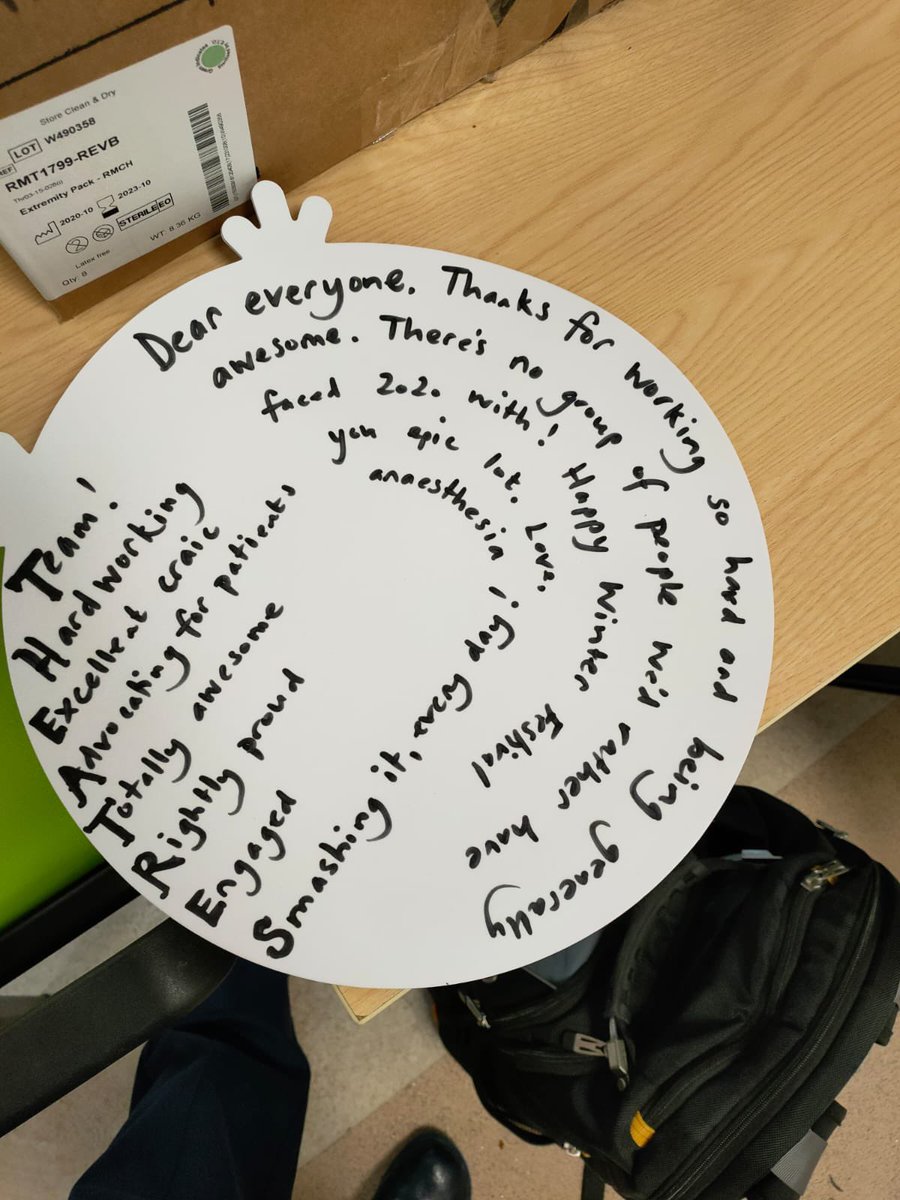 Store Clean & Dry
LOT W490358
REF RMT1799-REVB
Extremity Pack - RMCH
2020-10 2023-10
STERILE EO
WT: 8.36 KG
Latex free
Qty: 8
Dear everyone. Thanks for working so hard and being generally
awesome. There's no group of people we'd rather have
faced 2020 with! Happy Winter Festival
you epic lot. Love,
anaesthesia
Team!
Hardworking
Excellent craic
Advocating for patients
Totally awesome
Rightly proud
Engaged
Smashing it, every day!